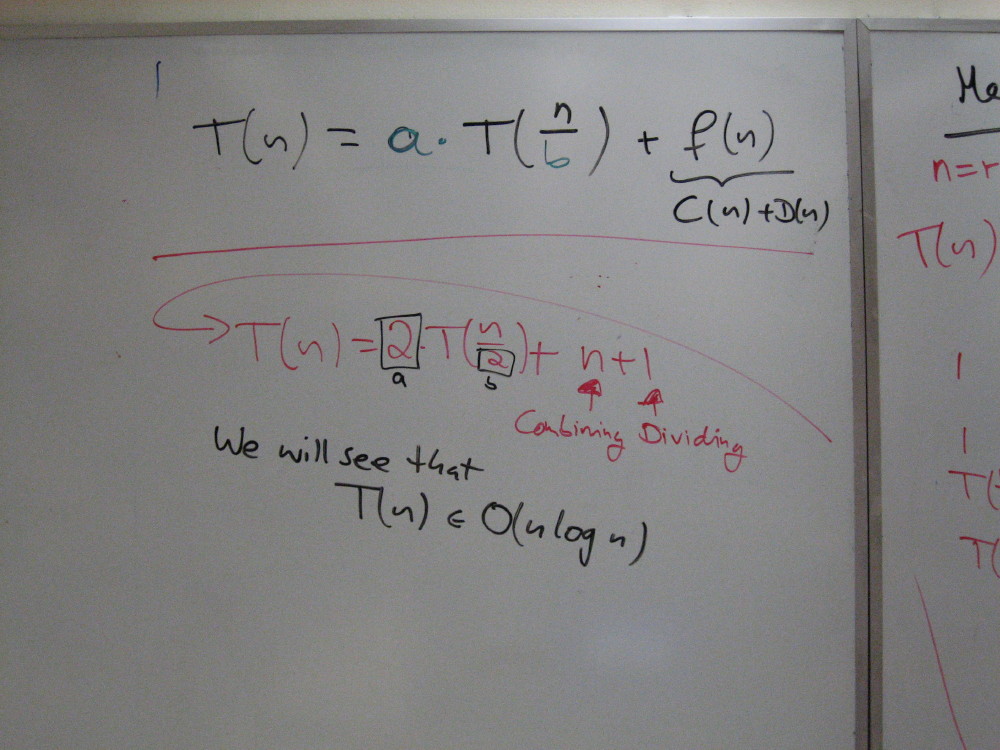 T(n) = a · T(n/b) + f(n)
C(n) + D(n)
T(n) = 2 · T(n/2) + n + 1
a b
Combining Dividing
We will see that
T(n) ∈ O(n log n)
n=r
T(n)
1
1
T(
T(